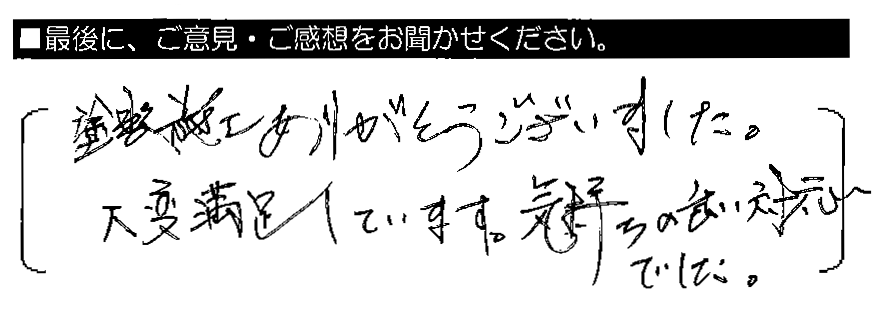 ■最後に、ご意見・ご感想をお聞かせください。
塗装施工ありがとうございました。
大変満足しています。気持ちの良い対応
でした。